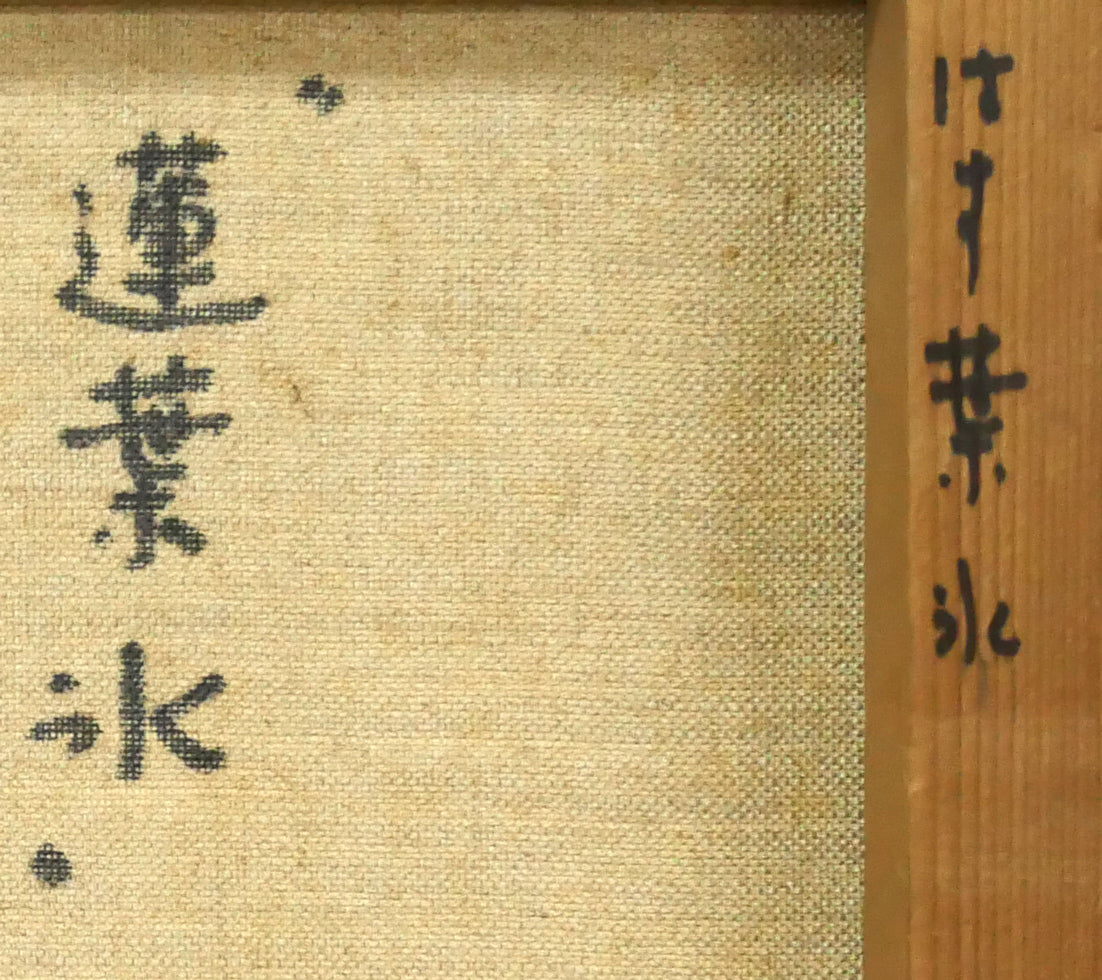 はす葉氷
蓮葉氷